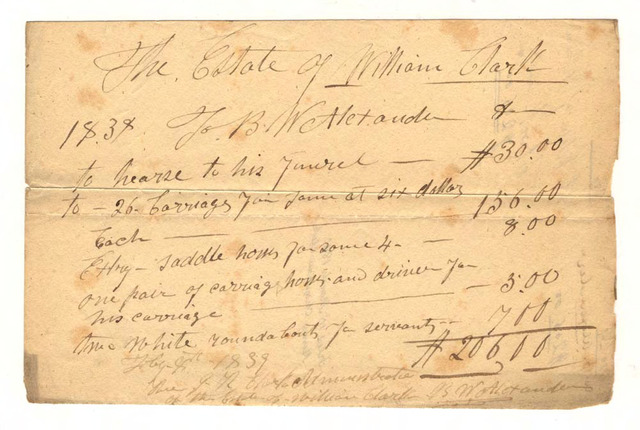 The Estate of William Clark
1838 To B. W. Alexander
to hearse to his funerel — #30.00
to - 26 Carriages for same at six dollars
Each — 156.00
saddle horses for same 4 — 8.00
one pair of carriage horses and driver for
his carriage — 5.00
two white roundabouts for servants — 7.00
#206.00
1839
Administrator
of the Estate of William Clark B. W. Alexander